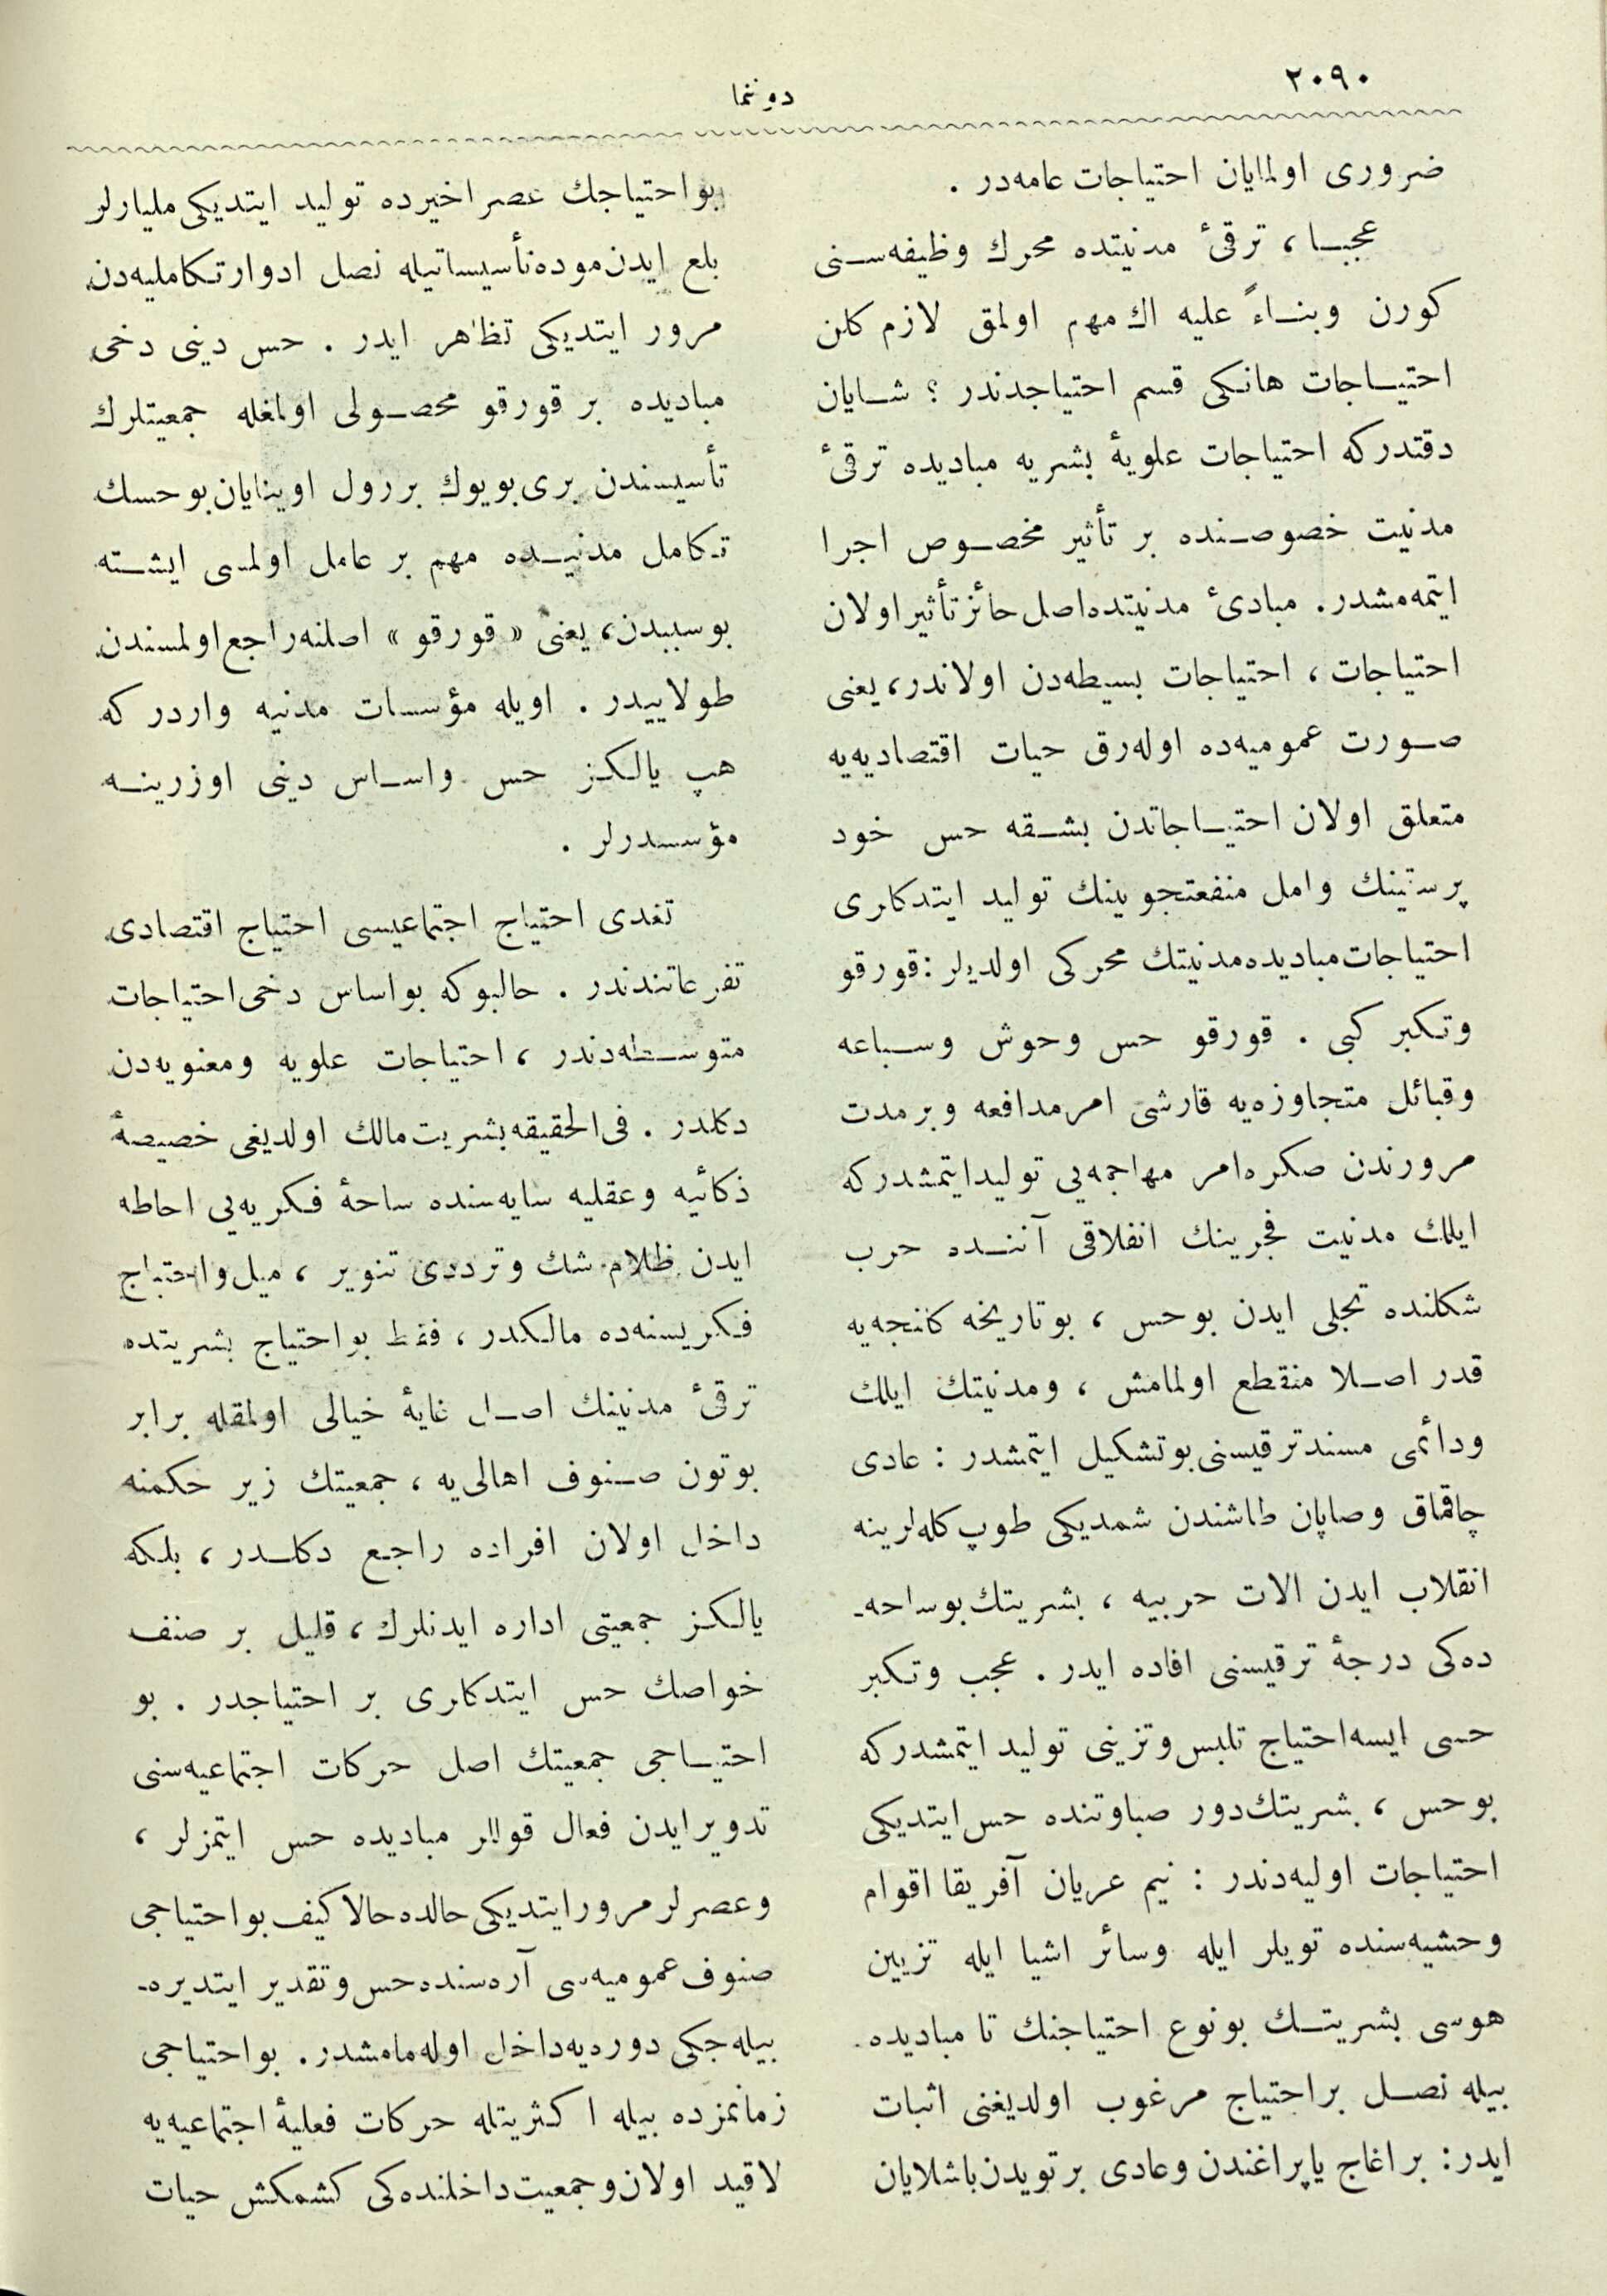 ٢٠٩٠
دوننما
ضروری اولمایان احتیاجات عامه‌در .
عجبا ، ترقیٔ مدنیتده محرك وظیفه‌سنی
کورن وبناءً علیه اك مهم اولمق لازم کلن
احتیاجات هانکی قسم احتیاجدندر ؟ شایان
دقتدرکه احتیاجات علویهٔ بشریه مبادیده ترقیٔ
مدنیت خصوصنده بر تأثیر مخصوص اجرا
ایتمه‌مشدر. مبادیٔ مدنیتده اصل حائز تأثیر اولان
احتیاجات ، احتیاجات بسیطه‌دن اولاندر، یعنی
صورت عمومیه‌ده اوله‌رق حیات اقتصادیه‌یه
متعلق اولان احتیاجاتدن بشقه حس خود
پرستینك وامل منفعتجوینك تولید ایتدکلری
احتیاجات مبادیده مدنیتك محرکی اولدیلر : قورقو
وتکبر کبی . قورقو حس وحوش وسباعه
وقبائل متجاوزه‌یه قارشی امر مدافعه وبر مدت
مرورندن صکره امر مهاجمه‌یی تولید ایتمشدرکه
ایلك مدنیت فجرینك انفلاقی آننده حرب
شکلنده تجلی ایدن بو حس ، بو تاریخه کلنجه‌یه
قدر اصلا منقطع اولمامش ، ومدنیتك ایلك
ودائمی مسند ترقیسنی بو تشکیل ایتمشدر : عادی
چاقماق وصاپان طاشندن شمدیکی طوپ کله‌لرینه
انقلاب ایدن الات حربیه ، بشریتك بو ساحه‌ـ
ده‌کی درجهٔ ترقیسنی افاده ایدر . عجب وتکبر
حسی ایسه احتیاج تلبس وتزینی تولید ایتمشدرکه
بو حس ، بشریتك دور صباوتنده حس ایتدیکی
احتیاجات اولیه‌دندر : نیم عریان آفریقا اقوام
وحشیه‌سنده تویلر ایله وسائر اشیا ایله تزیین
هوسی بشریتك بو نوع احتیاجنك تا مبادیده
بیله نصل بر احتیاج مرغوب اولدیغنی اثبات
ایدر: بر اغاج یاپراغندن وعادی بر تویدن باشلایان
بو احتیاجك عصر اخیرده تولید ایتدیکی ملیارلر
بلع ایدن موده تأسیساتیله نصل ادوار تکاملیه‌دن
مرور ایتدیکی تظاهر ایدر . حس دینی دخی
مبادیده بر قورقو محصولی اولمغله جمعیتلرك
تأسیسندن بری بویوك بر رول اوینایان بو حسك
تکامل مدنیده مهم بر عامل اولمسی ایشته
بو سببدن، یعنی « قورقو » اصلنه راجع اولمسندن
طولاییدر . اویله مؤسسات مدنیه واردر که
هپ یالکز حس واساس دینی اوزرینه
مؤسسدرلر .
تغدی احتیاج اجتماعیسی احتیاج اقتصادی
تفرعاتندندر . حالبوکه بو اساس دخی احتیاجات
متوسطه‌دندر ، احتیاجات علویه ومعنویه‌دن
دکلدر . فی‌الحقیقه بشریت مالك اولدیغی خصیصهٔ
ذکائیه وعقلیه سایه‌سنده ساحهٔ فکریه‌یی احاطه
ایدن ظلام شك وترددی تنویر ، میل واحتیاج
فکریسنه‌ده مالکدر ، فقط بو احتیاج بشریتده
ترقیٔ مدنینك اصل غایهٔ خیالی اولمقله برابر
بوتون صنوف اهالی‌یه ، جمعیتك زیر حکمنه
داخل اولان افراده راجع دکلدر ، بلکه
یالکز جمعیتی اداره ایدنلرك ، قلیل بر صنف
خواصك حس ایتدکلری بر احتیاجدر . بو
احتیاجی جمعیتك اصل حرکات اجتماعیه‌سنی
تدویر ایدن فعال قوللر مبادیده حس ایتمزلر ،
وعصرلر مرور ایتدیکی حالده حالا کیف بو احتیاجی
صنوف عمومیه‌سی آره‌سنده حس وتقدیر ایتدیره‌ـ
بیله‌جکی دوره‌یه داخل اوله‌مامشدر. بو احتیاجی
زمانمزده بیله اکثریتله حرکات فعلیهٔ اجتماعیه‌یه
لاقید اولان وجمعیت داخلنده‌کی کشمکش حیات